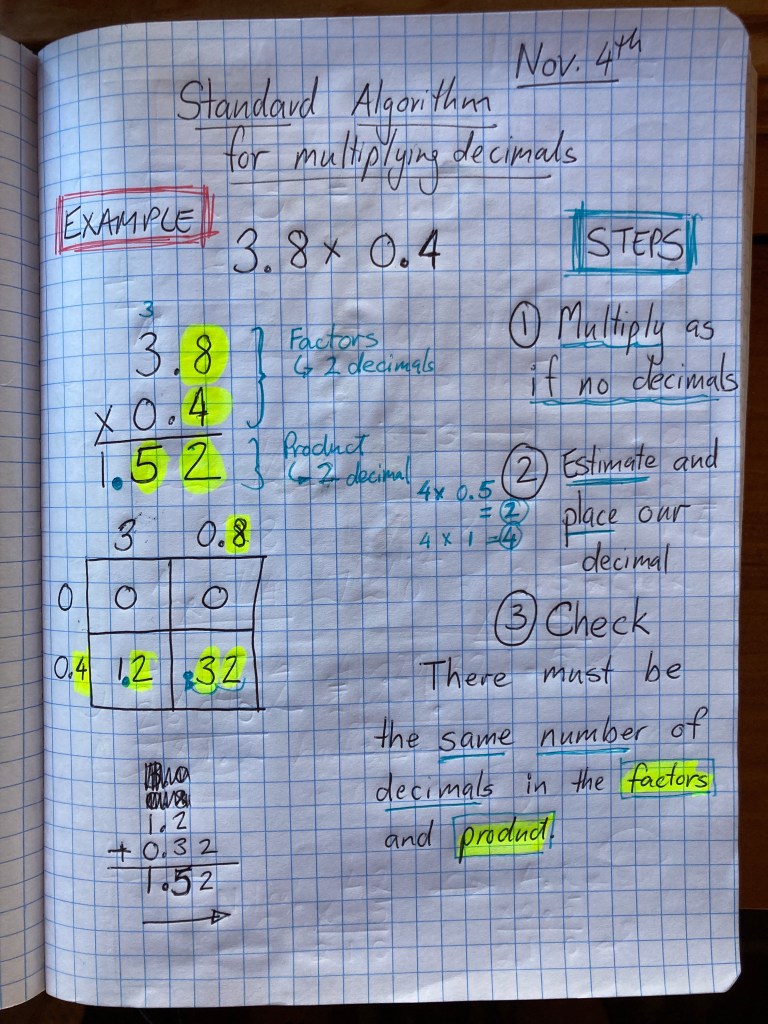 Nov. 4th
Standard Algorithm
for multiplying decimals
EXAMPLE
3.8 x 0.4
3
3.8
x 0.4
1.52
Factors
↳ 2 decimals
Product
↳ 2 decimal
3 0.8
0 0 0
0.4 1.2 .32
1.2
+ 0.32
1.52
STEPS
① Multiply as
if no decimals
② Estimate and
place our
decimal
4 x 0.5
= 2
4 x 1 = 4
③ Check
There must be
the same number of
decimals in the factors
and product.